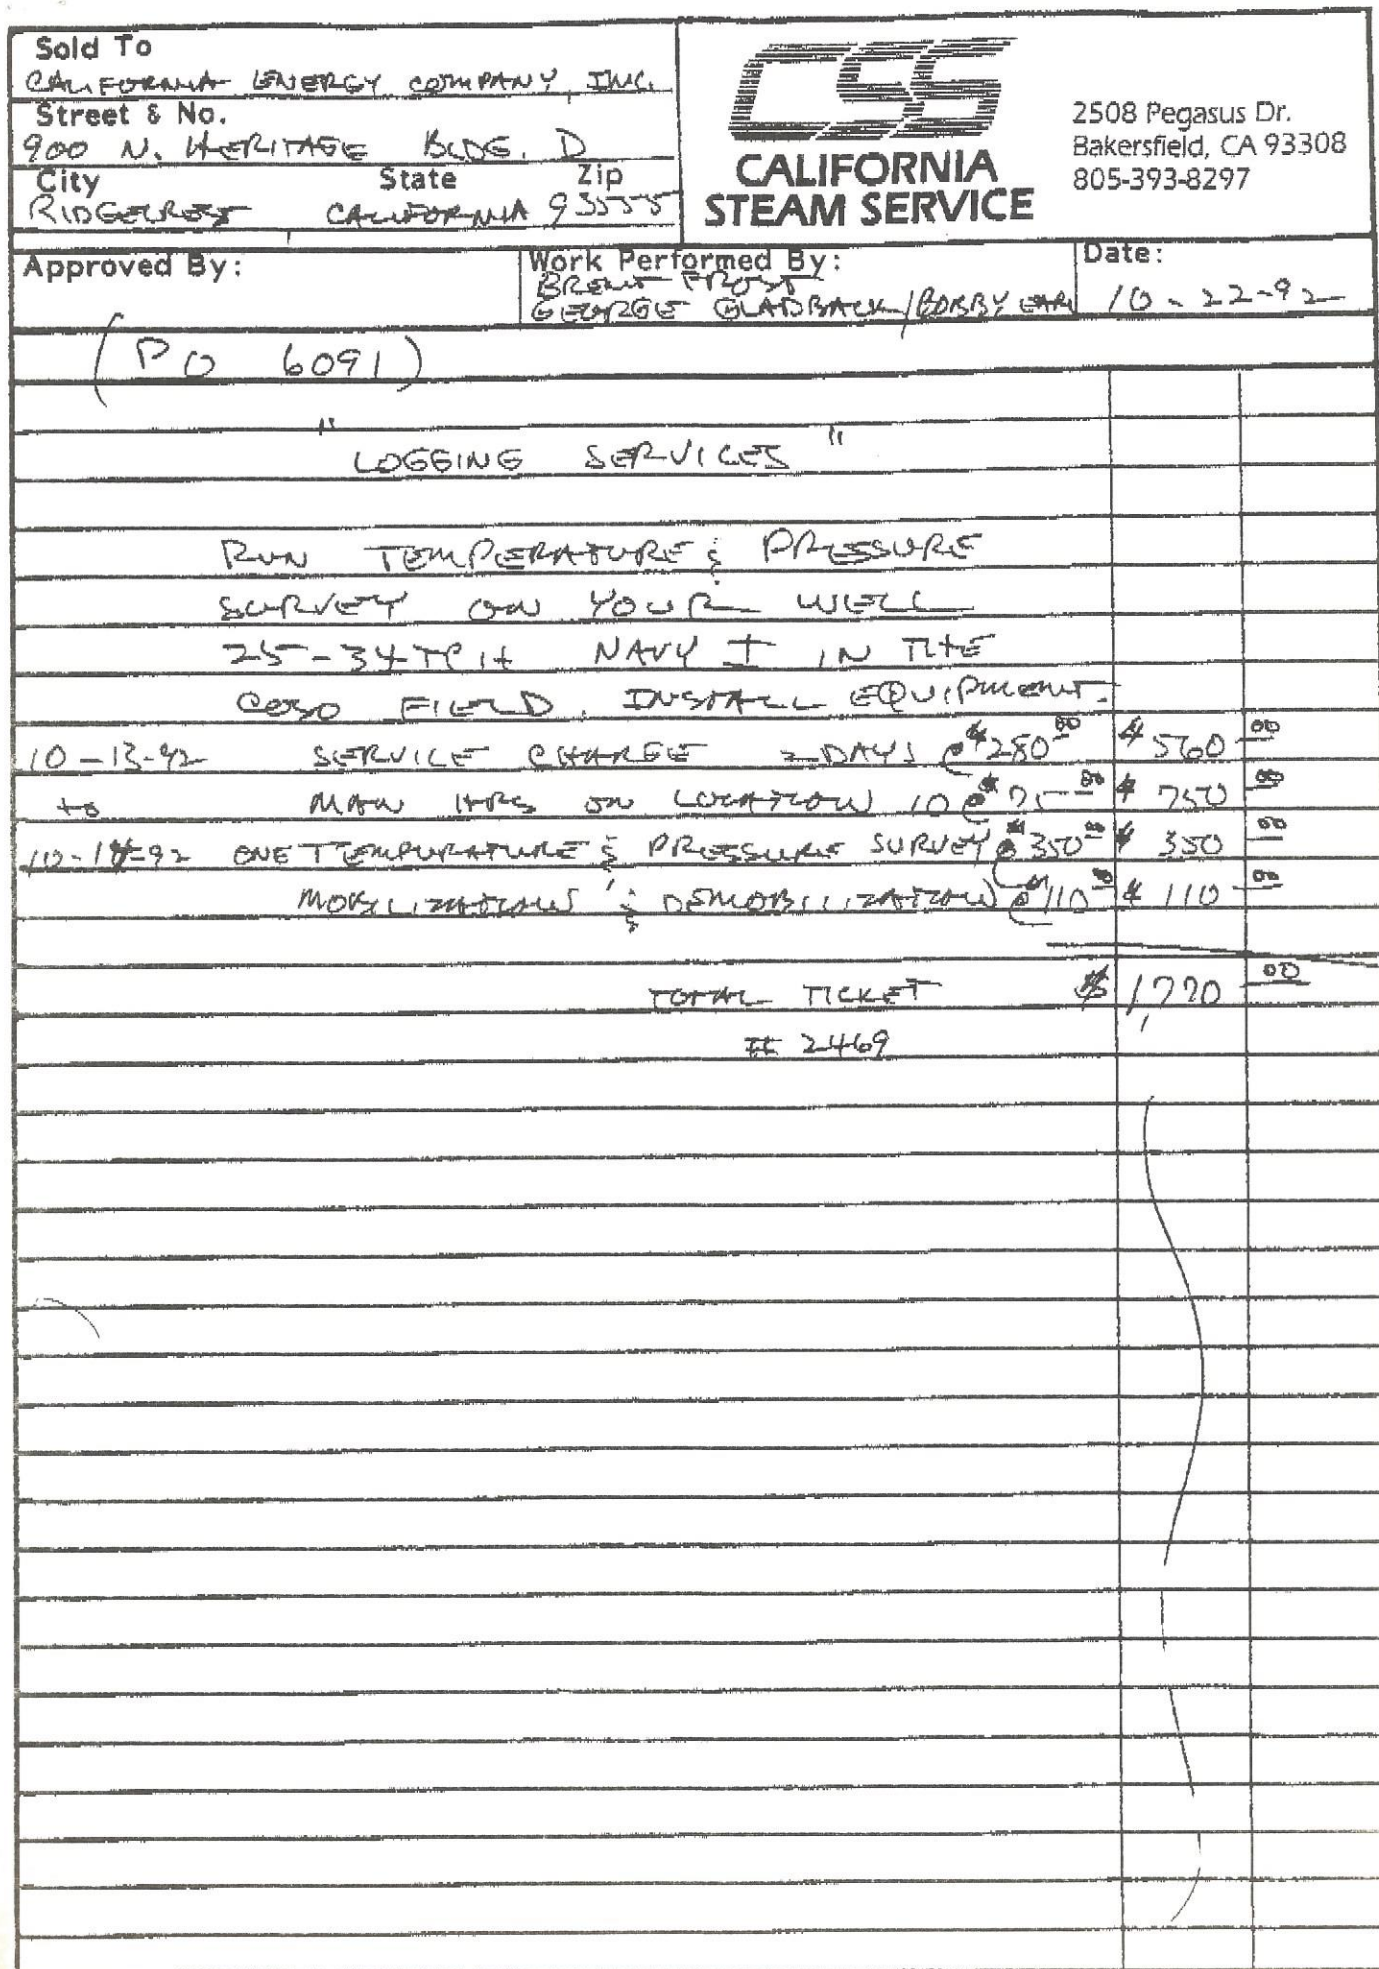 Sold To
CALIFORNIA ENERGY COMPANY, INC.
Street & No.
900 N. HERITAGE BLDG. D
City State Zip
RIDGECREST CALIFORNIA 93555
CSS
CALIFORNIA
STEAM SERVICE
2508 Pegasus Dr.
Bakersfield, CA 93308
805-393-8297
Approved By:
Work Performed By:
BRENT FROST
GEORGE GLADBACK/BOBBY EARL
Date:
10-22-92
(PO 6091)
"LOGGING SERVICES"
RUN TEMPERATURE & PRESSURE
SURVEY ON YOUR WELL
25-34 TCH NAVY I IN THE
COSO FIELD. INSTALL EQUIPMENT.
10-13-92 SERVICE CHARGE 2 DAYS @ $280.00 $560 00
to MAN HRS ON LOCATION 10 @ $75.00 $750 00
10-14-92 ONE TEMPURATURE & PRESSURE SURVEY @ $350.00 $350 00
MOBILIZATION & DEMOBILIZATION @ $110.00 $110 00
TOTAL TICKET $1,770 00
# 2469